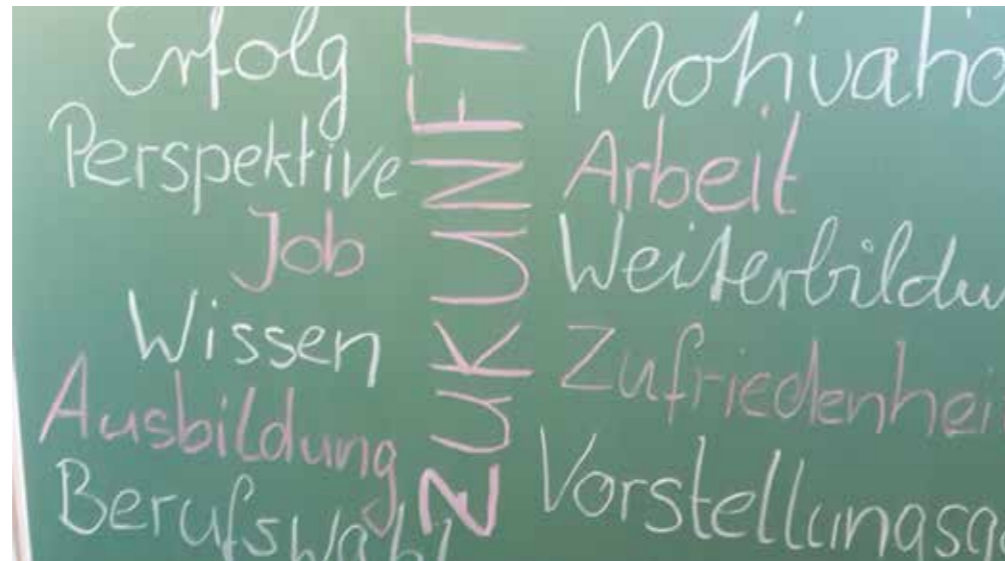 Erfolg
Perspektive
Job
Wissen
Ausbildung
Berufswahl
ZUKUNFT
Motivatio
Arbeit
Weiterbildu
Zufriedenhei
Vorstellungsge